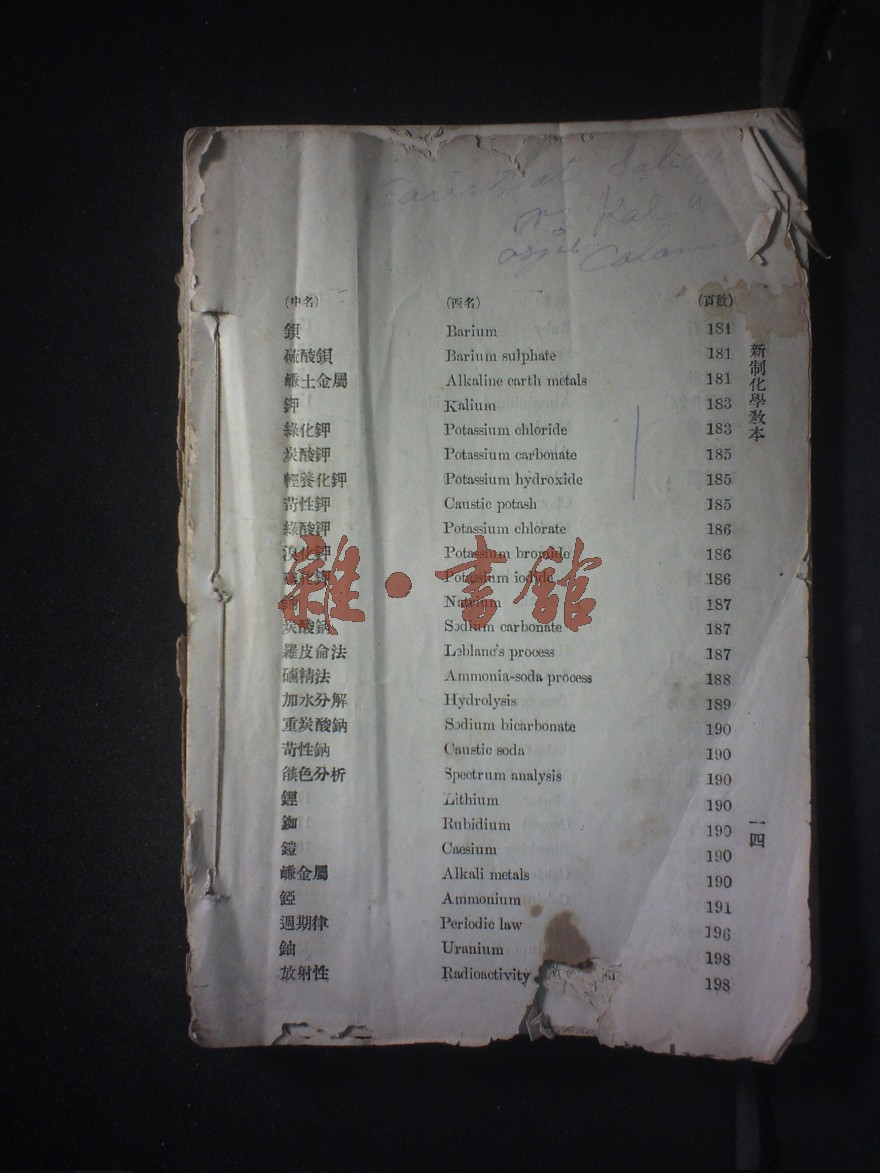 (中名) (西名) (頁數)
鋇 Barium 181
硫酸鋇 Barium sulphate 181
鹻土金屬 Alkaline earth metals 181
鉀 Kalium 183
綠化鉀 Potassium chloride 183
炭酸鉀 Potassium carbonate 185
輕養化鉀 Potassium hydroxide 185
苛性鉀 Caustic potash 185
綠酸鉀 Potassium chlorate 186
溴化鉀 Potassium bromide 186
化鉀 Potassium iodide 186
Natrium 187
炭酸鈉 Sodium carbonate 187
羅皮侖法 Leblanc's process 187
精法 Ammonia-soda process 188
加水分解 Hydrolysis 189
重炭酸鈉 Sodium bicarbonate 190
苛性鈉 Caustic soda 190
色分析 Spectrum analysis 190
鋰 Lithium 190
銣 Rubidium 190
Caesium 190
鹻金屬 Alkali metals 190
錏 Ammonium 191
週期律 Periodic law 196
鈾 Uranium 198
放射性 Radioactivity 198
新制化學教本
一四
雜·書館